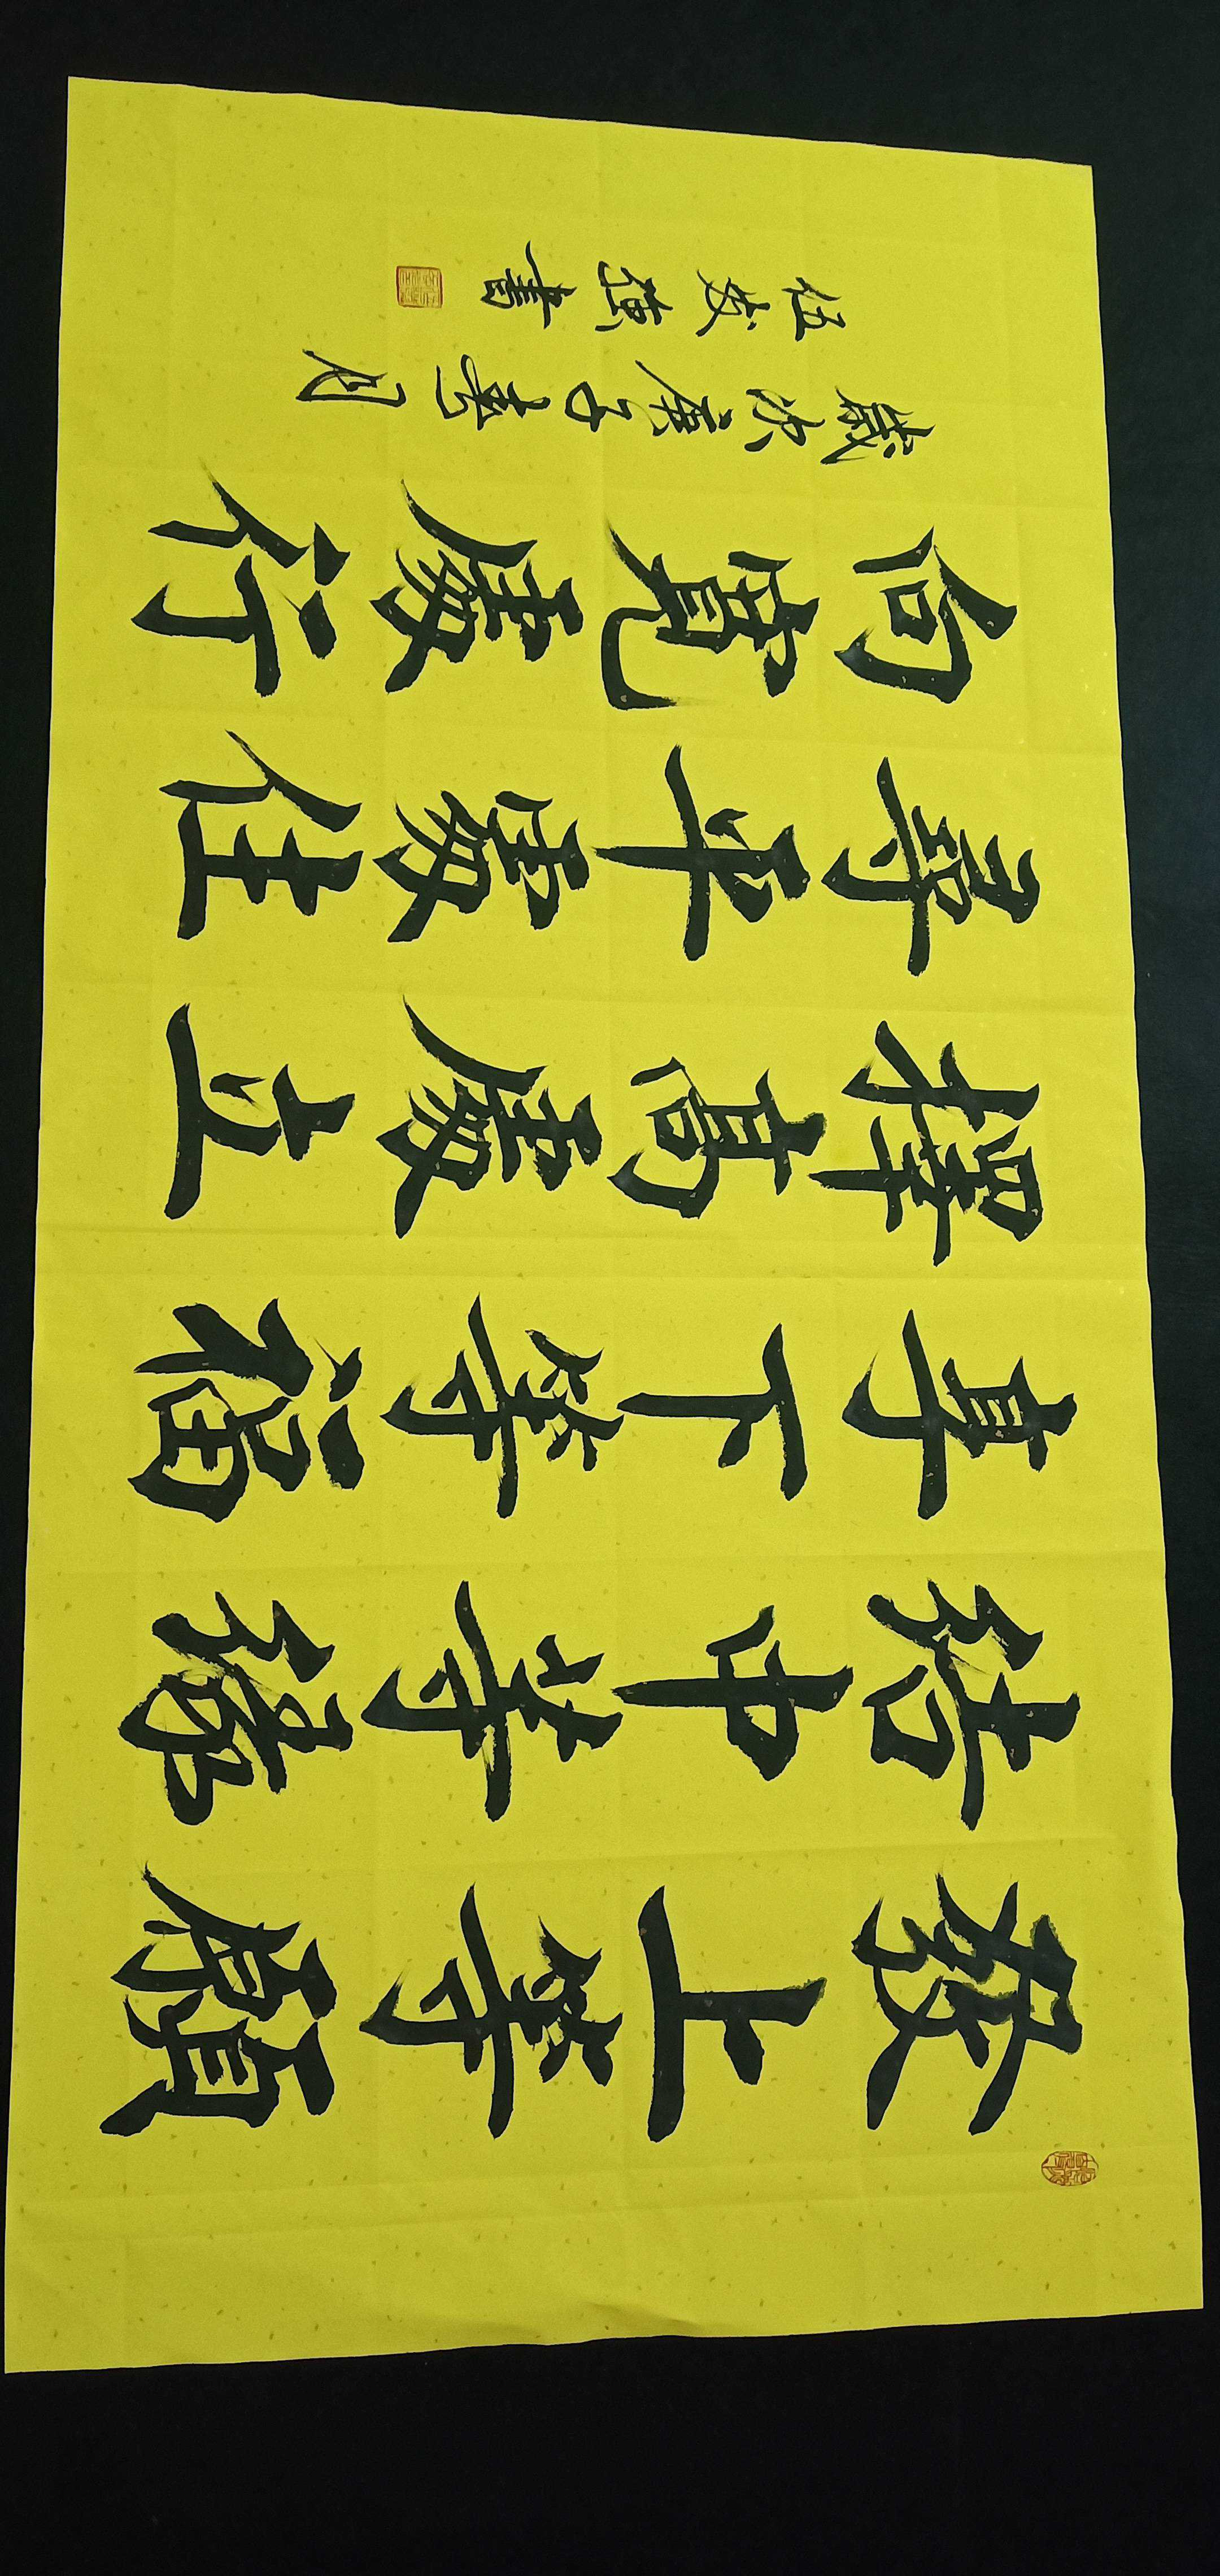 發上等願
結中等緣
享下等福
擇高處立
尋平處住
向寬處行
歲次庚子月
伍強書